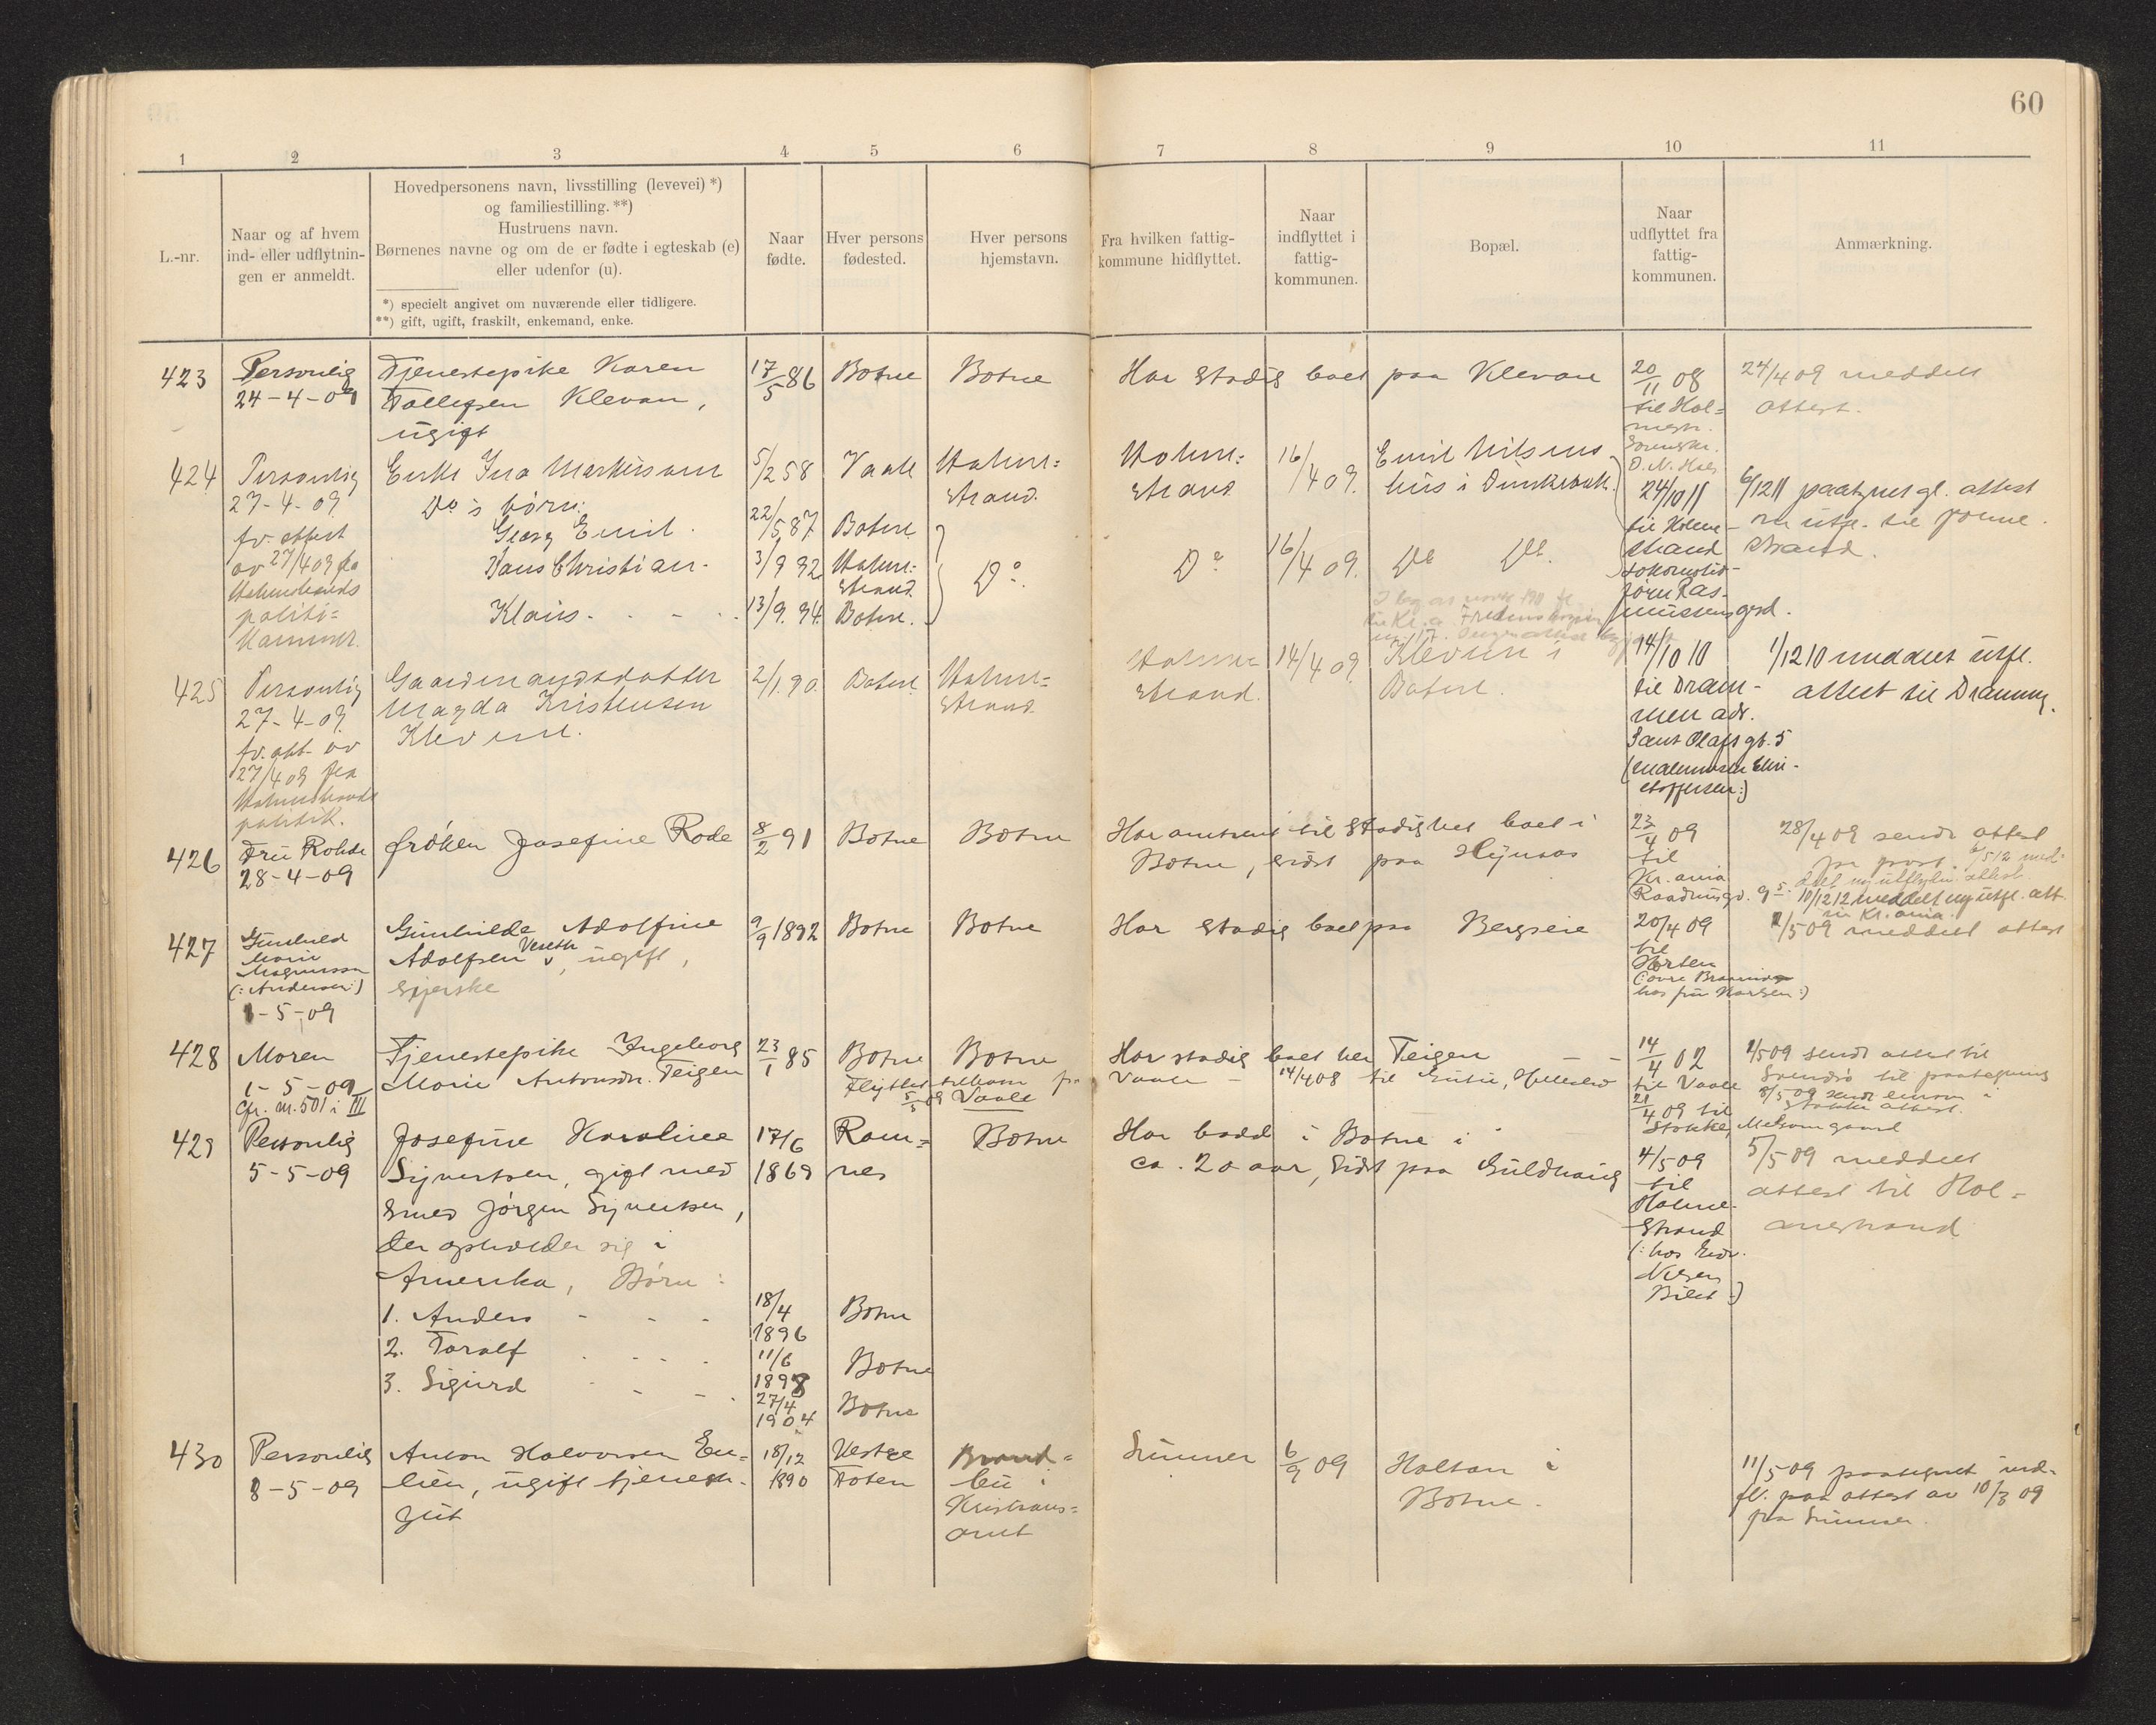 60
1 2 3 4 5 6 7 8 9 10 11
L.-nr.
Naar og af hvem
ind- eller udflytnin-
gen er anmeldt.
Hovedpersonens navn, livsstilling (levevei) *)
og familiestilling. **)
Hustruens navn.
Børnenes navne og om de er fødte i egteskab (e)
eller udenfor (u).
*) specielt angivet om nuværende eller tidligere.
**) gift, ugift, fraskilt, enkemand, enke.
Naar
fødte.
Hver persons
fødested.
Hver persons
hjemstavn.
Fra hvilken fattig-
kommune hidflyttet.
Naar
indflyttet i
fattig-
kommunen.
Bopæl.
Naar
udflyttet fra
fattig-
kommunen.
Anmærkning.
423
Personlig
24-4-09
Tjenestepike Karen
Tollefsen Klevan,
ugift
17/5 86
Botne
Botne
Har stadig boet paa Klevan
20/11 08
til Hol=
mestr.
24/4 09 meddelt
attest.
424
Personlig
27-4-09
fv. attest
av 27/4 09 fra
Holmestrands
politi=
kammer.
Enke Ina Markussen
Do's børn:
Georg Emil.
Hans Christian.
Klaus.
5/2 58
22/5 87.
3/9 92
13/9. 94.
Vaale
Botne
Holme=
strand
Botne.
Holme=
strand.
Do.
Holme=
strand
Do
16/4 09.
16/4 09.
Emil Nilsens
hus i Dunkevak.
Do Do.
24/10 11
til Holme-
strand
6/12 11 paategnet gl. attest
om utfl. til Holme
strand.
425
Personlig
27-4-09.
fv. att. av
27/4 09 fra
Holmestrands
politik.
Gaardmandsdatter
Magda Kristensen
Klevene.
2/1. 90.
Botne
Holme=
strand
Holme=
strand.
14/4 09
Klevene i
Botne.
14/10 10
til Dram-
men adr.
Sant Olafs gt. 5
1/12 10 meddelt utfl.
attest til Drammen.
426
Fru Rohde
28-4-09
frøken Josefine Rode
8/2 91
Botne
Botne
Har omtrent til stadighet boet i
Botne, sidst paa
23/4 09
til
Kr.ania
28/4 09 sendt attest
pr post.
10/12 12 meddelt ny utfl. att.
til Kr.ania.
427
Gunhild
Marie
Magnussen
(: Andersen :)
1-5-09
Gunhilde Adolfine
Adolfsen Veseth, ugift,
sjerske
9/9 1892
Botne
Botne
Har stadig boet paa Bergseie
20/4 09
til
Horten
1/5 09 meddelt attest
428
Moren
1-5-09
Cfr. nr. 501 i III
Tjenestepike Ingeborg
Marie Antonsdr. Teigen
23/1 85
Botne
Botne
Har stadig boet her Teigen
Vaale - 14/4 08 til
14/4 02
til Vaale
21/4 09 til
Stokke,
1/5 09 sendt attest til
429
Personlig
5-5-09
Josefine Karoline
Syvertsen, gift med
smed Jørgen Syvertsen,
der opholder sig i
Amerika, Børn:
1. Anders
2. Toralf
3. Sigurd
17/6
1869
18/4
1896
11/6
1898
27/4
1904
Ram=
nes
Botne
Botne
Botne
Botne
Har bodd i Botne i
ca. 20 aar, sidst paa Guldhaug
4/5 09
til
Holme-
strand
5/5 09 meddelt
attest til Hol=
mestrand
430
Personlig
8-5-09
Anton Halvorsen En=
lien, ugift tjeneste-
gut
18/12
1890
Vestre
Toten
Brand=
bu i
Kristians=
amt
6/9 09
Holtan i
Botne.
11/5 09 paategnet ind-
fl. paa attest av 10/3 09
fra